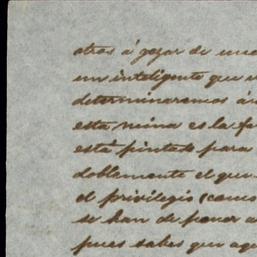 otros á gozar de una
un inteligente que
determinaremos á
esta mina es la fa
está pintada para
doblemente el que
el privilegio (como
se han de poner a
pues sabes que aqu